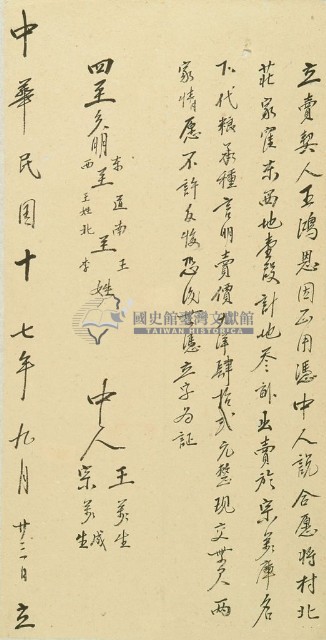 立賣契人王鴻恩因正用憑中人說合愿將村北
莊家窪东西地壹段計地叁畝出賣於宗美庫名
下代粮承種言明賣價大洋肆拾弍元整現交無欠兩
家情愿不許反悔恐后無憑立字為証
四至分明 东至道 南至王姓 西至王姓 北至李姓
中人 王美生 宗美成 生
中華民国十七年九月廿三日立
國史館臺灣文獻館
TAIWAN HISTORICA